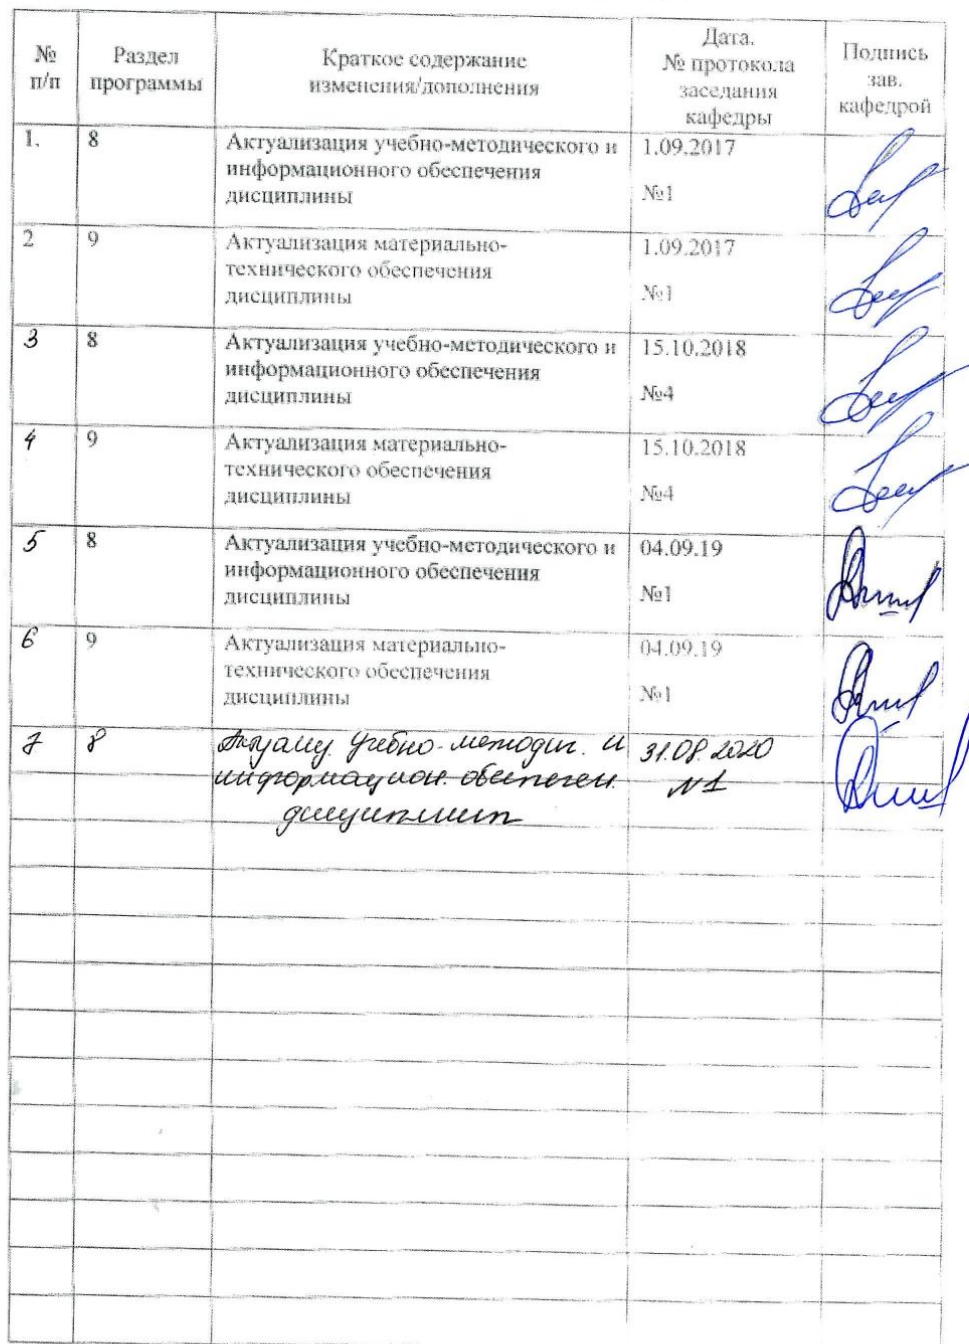 №
п/п
Раздел
программы
Краткое содержание
изменения/дополнения
Дата.
№ протокола
заседания
кафедры
Подпись
зав.
кафедрой
1.
8
Актуализация учебно-методического и
информационного обеспечения
дисциплины
1.09.2017
№1
2
9
Актуализация материально-
технического обеспечения
дисциплины
1.09.2017
№1
3
8
Актуализация учебно-методического и
информационного обеспечения
дисциплины
15.10.2018
№4
4
9
Актуализация материально-
технического обеспечения
дисциплины
15.10.2018
№4
5
8
Актуализация учебно-методического и
информационного обеспечения
дисциплины
04.09.19
№1
6
9
Актуализация материально-
технического обеспечения
дисциплины
04.09.19
№1
7
8
Актуализ. учебно-методич. и
информацион. обеспечен.
дисциплин
31.08.2020
№1